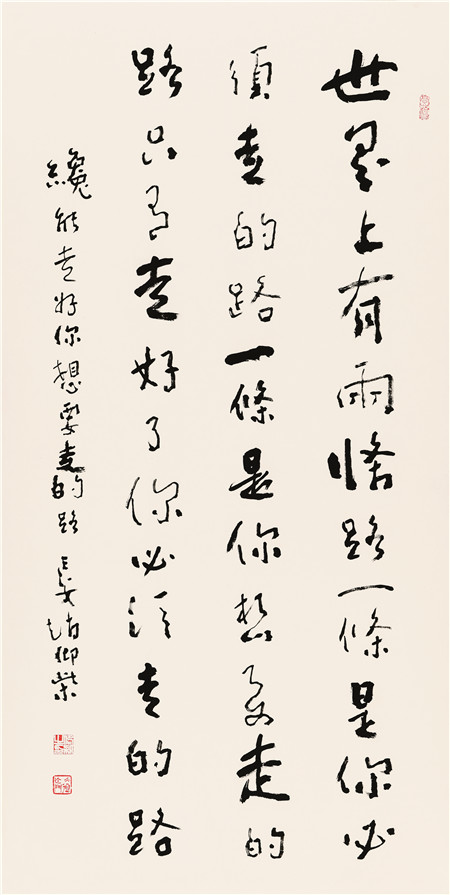 世界上有兩條路一條是你必
須走的路一條是你想要走的
路只有走好了你必須走的路
纔能走好你想要走的路